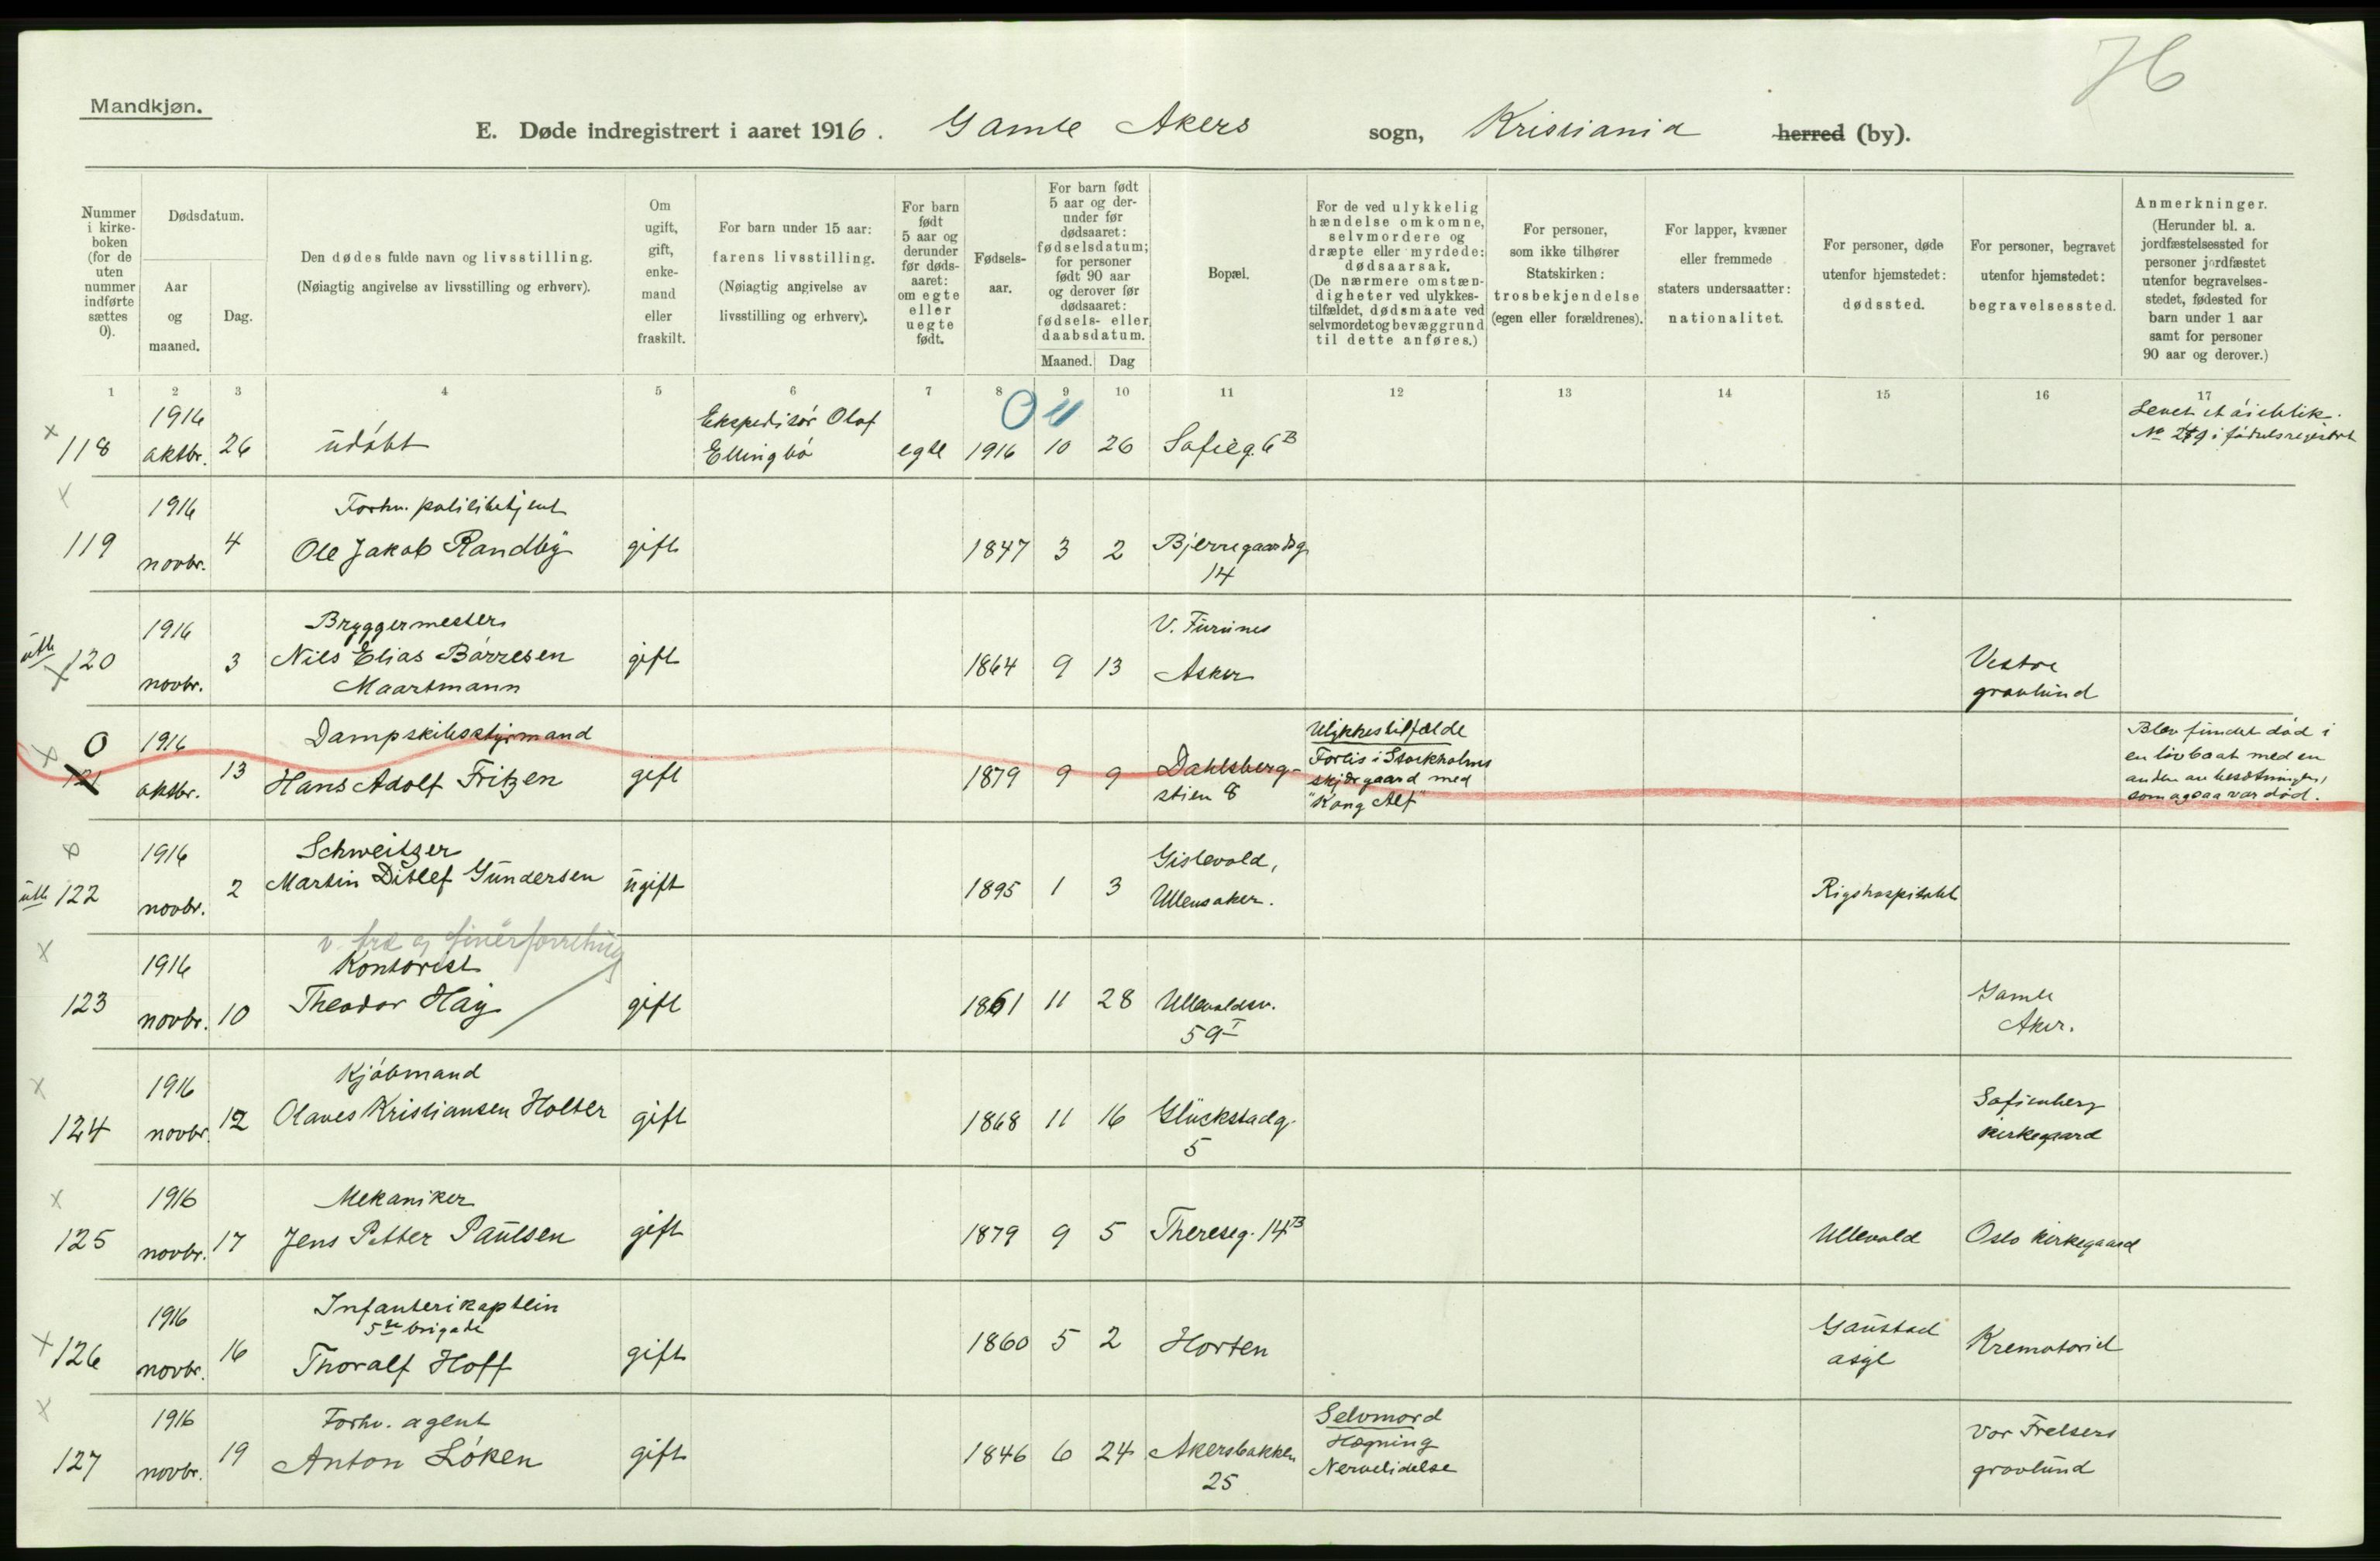 76
Mandkjøn.
E. Døde indregistrert i aaret 1916. Gamle Akers sogn, Kristiania herred (by).
Nummer i kirke-boken (for de uten nummer indførte sættes 0).
Dødsdatum.
Aar og maaned.
Dag.
Den dødes fulde navn og livsstilling.
(Nøiagtig angivelse av livsstilling og erhverv).
Om ugift, gift, enke-mand eller fraskilt.
For barn under 15 aar: farens livsstilling.
(Nøiagtig angivelse av livsstilling og erhverv).
For barn født 5 aar og derunder før døds-aaret: om egte eller uegte født.
Fødsels-aar.
For barn født 5 aar og der-under før dødsaaret: fødselsdatum; for personer født 90 aar og derover før dødsaaret: fødsels- eller daabsdatum.
Maaned. Dag
Bopæl.
For de ved ulykkelig hændelse omkomne, selvmordere og dræpte eller myrdede: dødsaarsak.
(De nærmere omstæn-digheter ved ulykkes-tilfældet, dødsmaate ved selvmordet og bevæggrund til dette anføres.)
For personer, som ikke tilhører Statskirken: trosbekjendelse (egen eller forældrenes).
For lapper, kvæner eller fremmede staters undersaatter: nationalitet.
For personer, døde utenfor hjemstedet: dødssted.
For personer, begravet utenfor hjemstedet: begravelsessted.
Anmerkninger.
(Herunder bl. a. jordfæstelsessted for personer jordfæstet utenfor begravelses-stedet, fødested for barn under 1 aar samt for personer 90 aar og derover.)
1 2 3 4 5 6 7 8 9 10 11 12 13 14 15 16 17
118 1916 oktbr. 26 udøbt Ekspeditør Olaf Ellingbø egte 1916 10 26 Sofieg. 6B Levet et øieblik. No i fødselsregistret
119 1916 novbr. 4 Forhv. politibetjent
Ole Jakob Randby gift 1847 3 2 Bjerregaardsg. 14
utb 120 1916 novbr. 3 Bryggermester
Nils Elias Børresen
Maartmann gift 1864 9 13 V. Furunes
Asker Vestre gravlund
0 121 1916 oktbr. 13 Dampskibsstyrmand
Hans Adolf Fritzen gift 1879 9 9 Dahlsberg-
stien 8 Ulykkestilfælde
Forlis i Stockholms
skjærgaard med
"Kong Alf" Blev fundet død i
en livbaat med en
anden av besætningen,
som ogsaa var død.
utb 122 1916 novbr. 2 Schweitzer
Martin Ditlef Gundersen ugift 1895 1 3 Gislevold,
Ullensaker. Rigshospitalet
v. træ og finérforretning
123 1916 novbr. 10 Kontorist
Theodor Høy gift 1861 11 28 Ullevoldsv.
59 I Gamle
Aker.
124 1916 novbr. 12 Kjøbmand
Olaves Kristiansen Holter gift 1868 11 16 Glückstadg.
5 Sofienberg
kirkegaard
125 1916 novbr. 17 Mekaniker
Jens Petter Paulsen gift 1879 9 5 Thereseg. 14B Ullevold Oslo kirkegaard
126 1916 novbr. 16 Infanterikaptein
5te brigade
Thoralf Hoff gift 1860 5 2 Horten Gaustad
asyl Krematoriet
127 1916 novbr. 19 Forhv. agent
Anton Løken gift 1846 6 24 Akersbakken
25 Selvmord
Hægning
Nervelidelse Vor Frelsers
gravlund